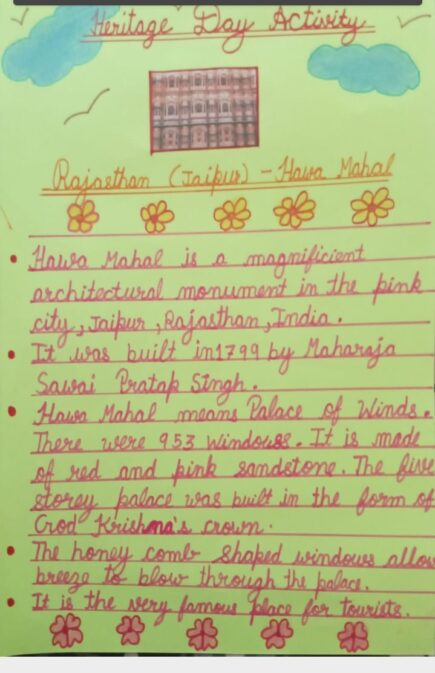 Heritage Day Activity
Rajasthan (Jaipur) - Hawa Mahal
• Hawa Mahal is a magnificient
architectural monument in the pink
city, Jaipur, Rajasthan, India.
• It was built in 1799 by Maharaja
Sawai Pratap Singh.
• Hawa Mahal means Palace of Winds.
There were 953 windows. It is made
of red and pink sandstone. The five
storey palace was built in the form of
God Krishna's crown.
• The honey comb shaped windows allow
breeze to blow through the palace.
• It is the very famous place for tourists.